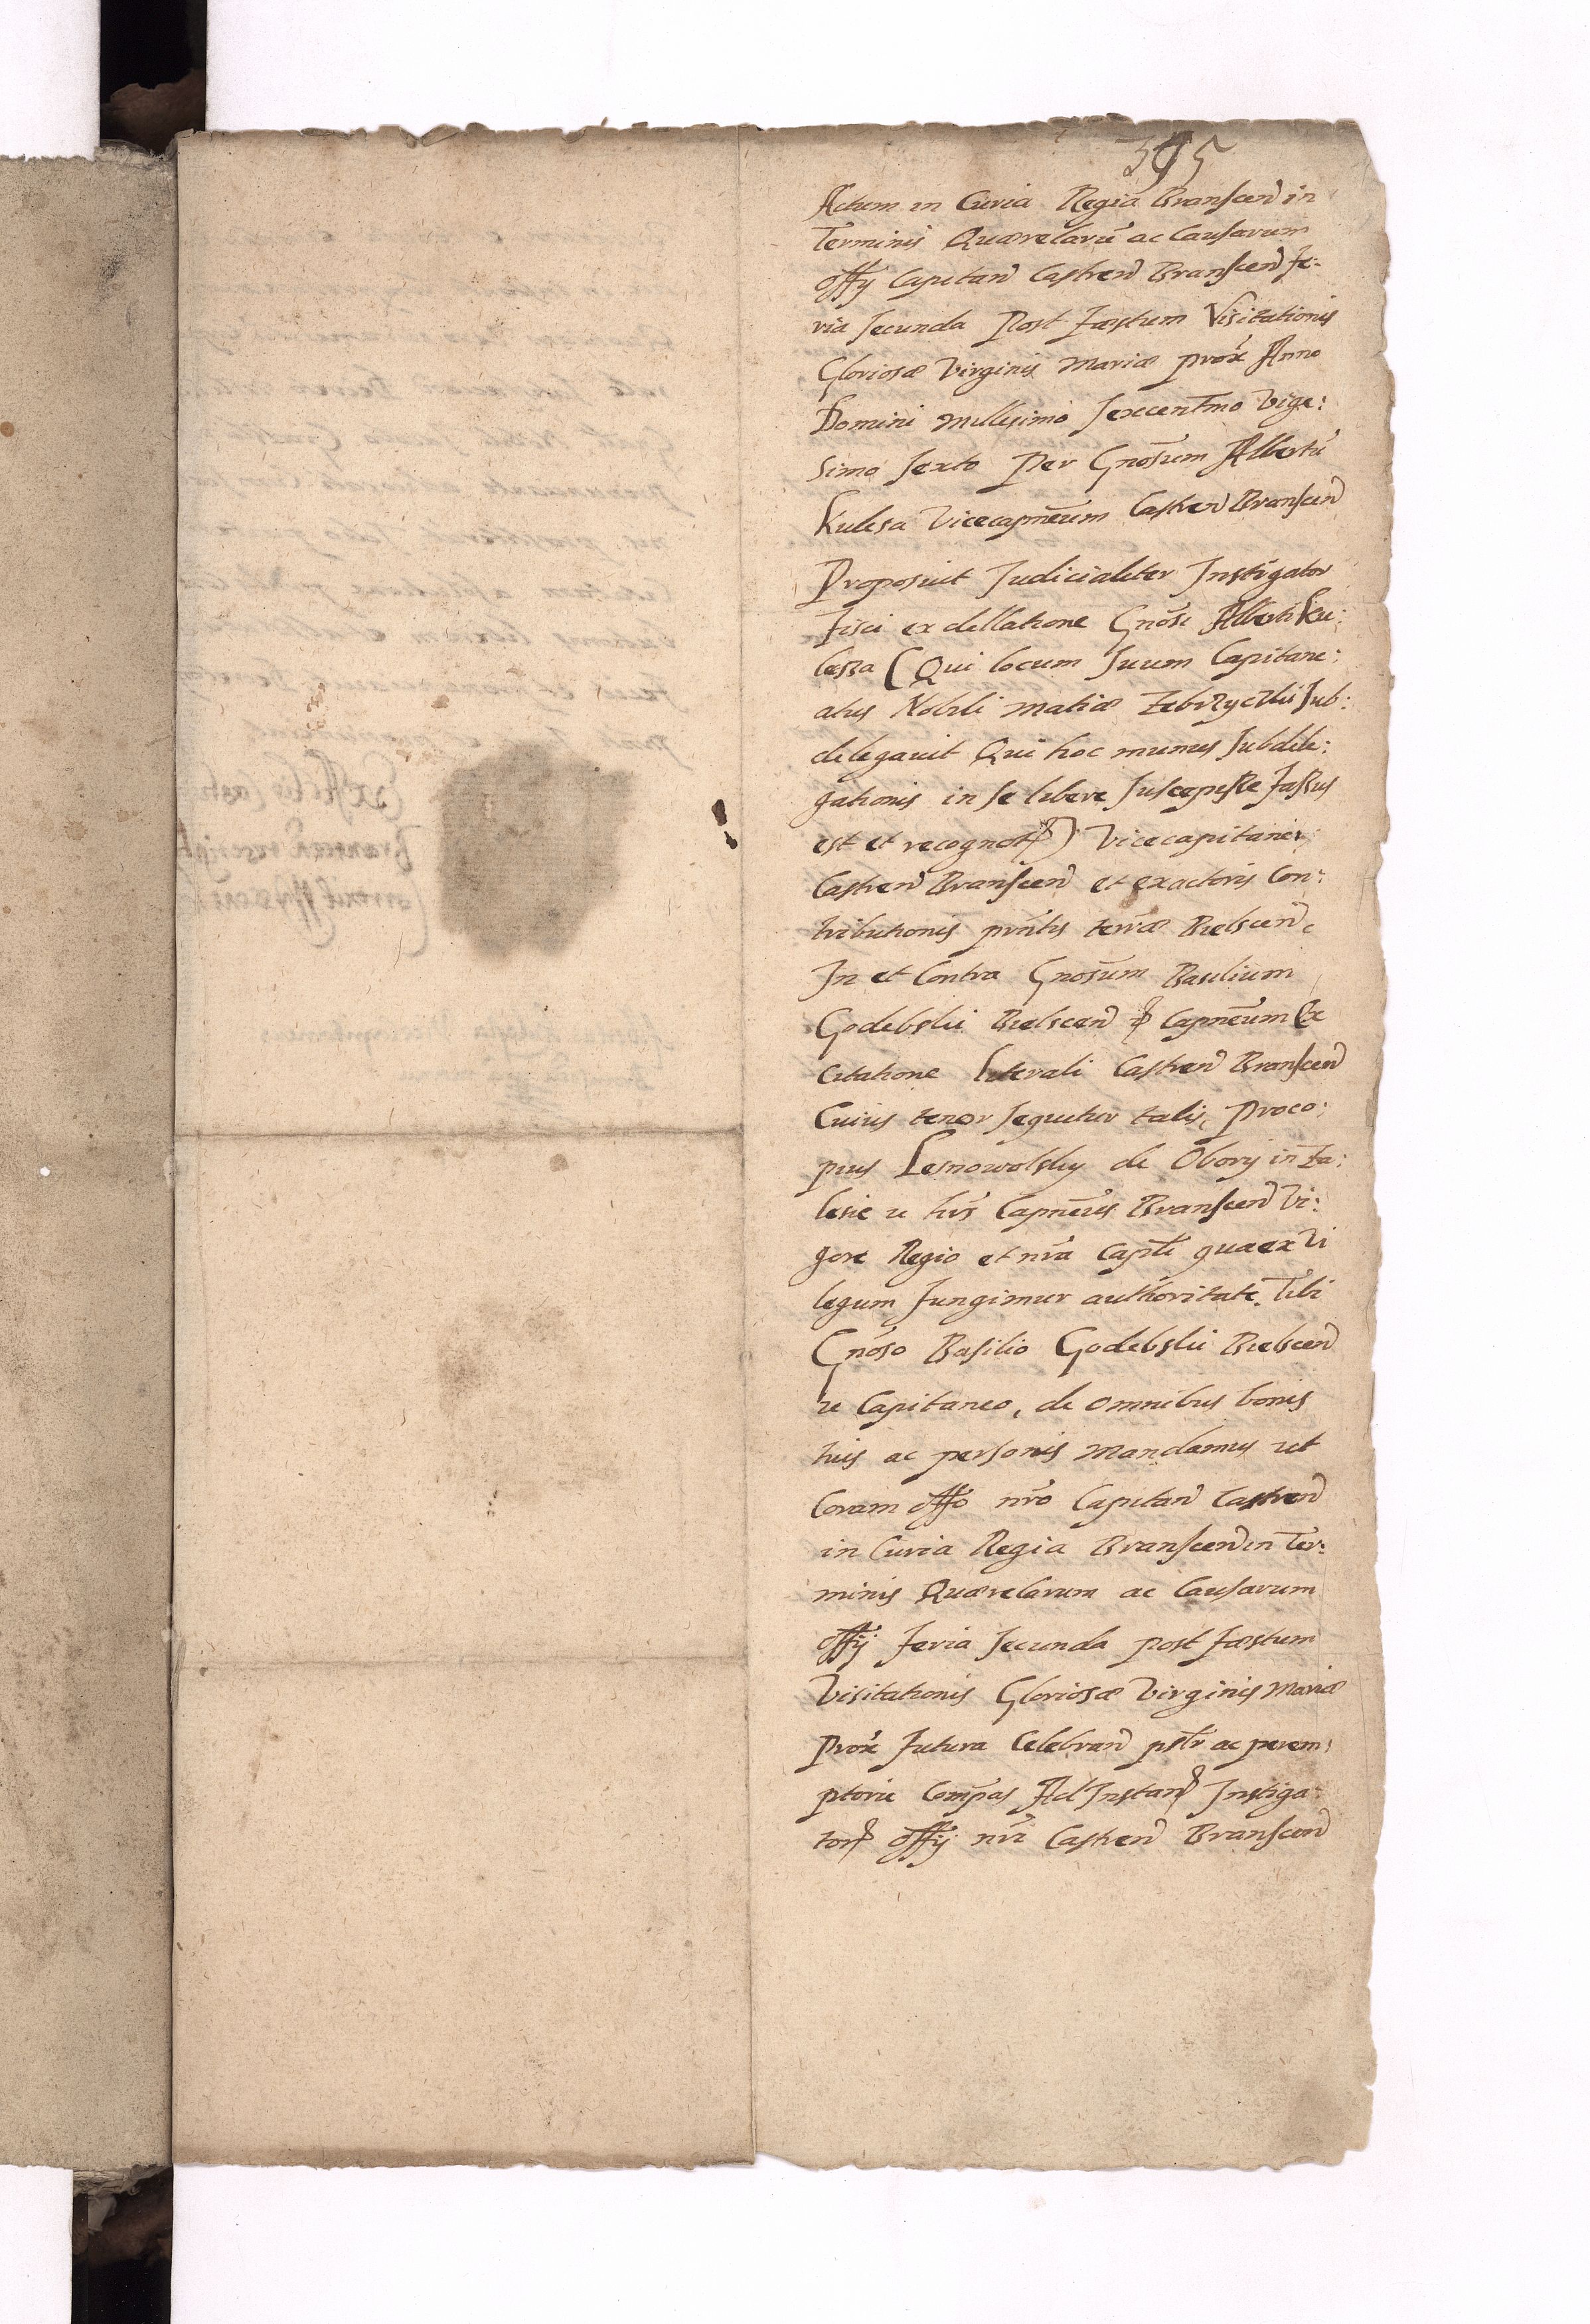 395
Actum in Curia Regia Branscen in
Terminis Quærelarū ac Causarum
offy Capitan Castren Branscen fe:
ria secunda Post Fæstum Visitationis
Gloriosæ Virginis Mariæ prox Anno
Domini Millesimo sexcentmo Vige:
simo sexto Per Gnosum Albertū
Kulesa Vicecapneum Castren Branscen
Proposuit Judicialiter Instigator
Fisci ex dellatione Gnosi Alberti Ku:
lessa (Qui locum suum Capitane:
atus Nobili Matiæ Zebrzyczkÿ sub:
delegauit Qui hoc munus subdele:
gationis in se libere suscepisse fassus
est et recognot) Vicecapitanei
Castren Branscen et exactoris Con:
tributionis pūntis terræ Bielscen,
In et Contra Gnosum Basilium
Godebski Bielscen Capneum Ex
Citatione literali Castren Branscen
Cuius tenor sequitur talis, Proco:
pius Lesnowolsky de Obory in Za:
lesie Capneus Branscen Vi:
gore Regio et nra Capli qua ex Vi
legum fungimur authoritate. Tibi
Gnoso Basilio Godebski Bielscen
V Capitaneo, de omnibus bonis
tuis ac personis mandamus ut
Coram offo nro Capitan Castren
in Curia Regia Branscen in Ter:
minis Quærelarum ac Causarum
offy feria secunda post fæstum
Visitationis Gloriosæ Virginis Mariæ
Prox futura Celebran pstr ac perem:
ptorie Compas Ad Instan Instiga:
tor offy nri Castren Branscen